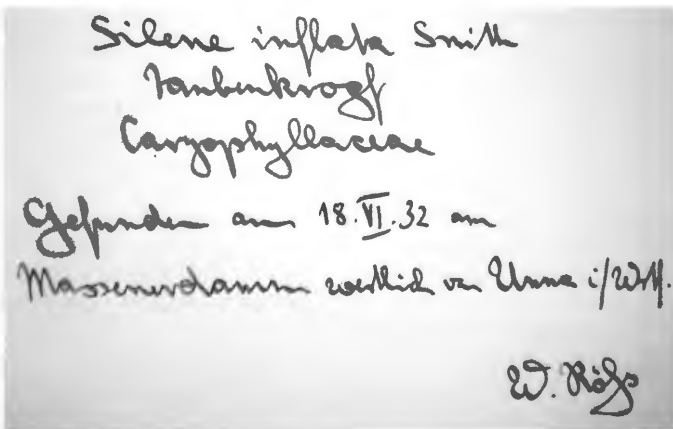 Silene inflata Smith
Taubenkropf
Caryophyllaceae
Gefunden am 18.VI.32 am
Massenerdamm westlich von Unna i/Wstf.
W.